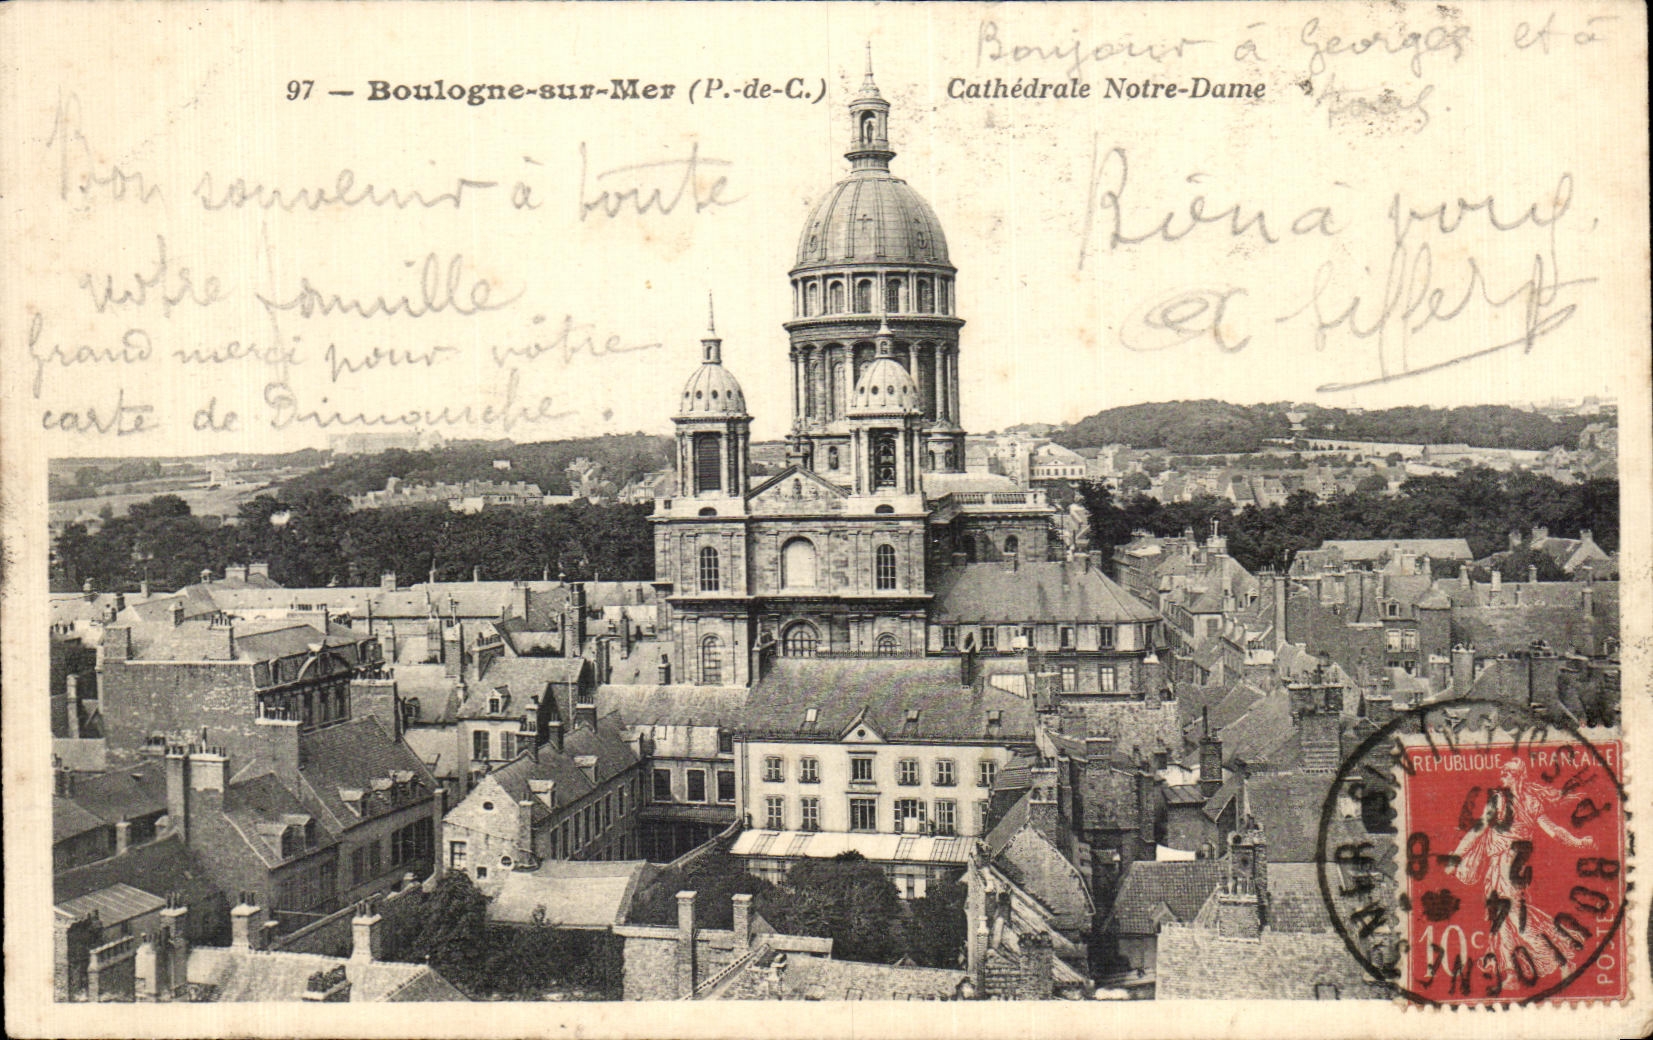 Bonjour à Georges et à
tous.
97 — Boulogne-sur-Mer (P.-de-C.) Cathédrale Notre-Dame
Bon souvenir à toute
votre famille
Grand merci pour vôtre
carte de Dimanche.
Rien à vous
REPUBLIQUE FRANÇAISE
10 c
POSTES
BOULOGNE-S-MER
PAS-DE-CALAIS
14
2 -8
07